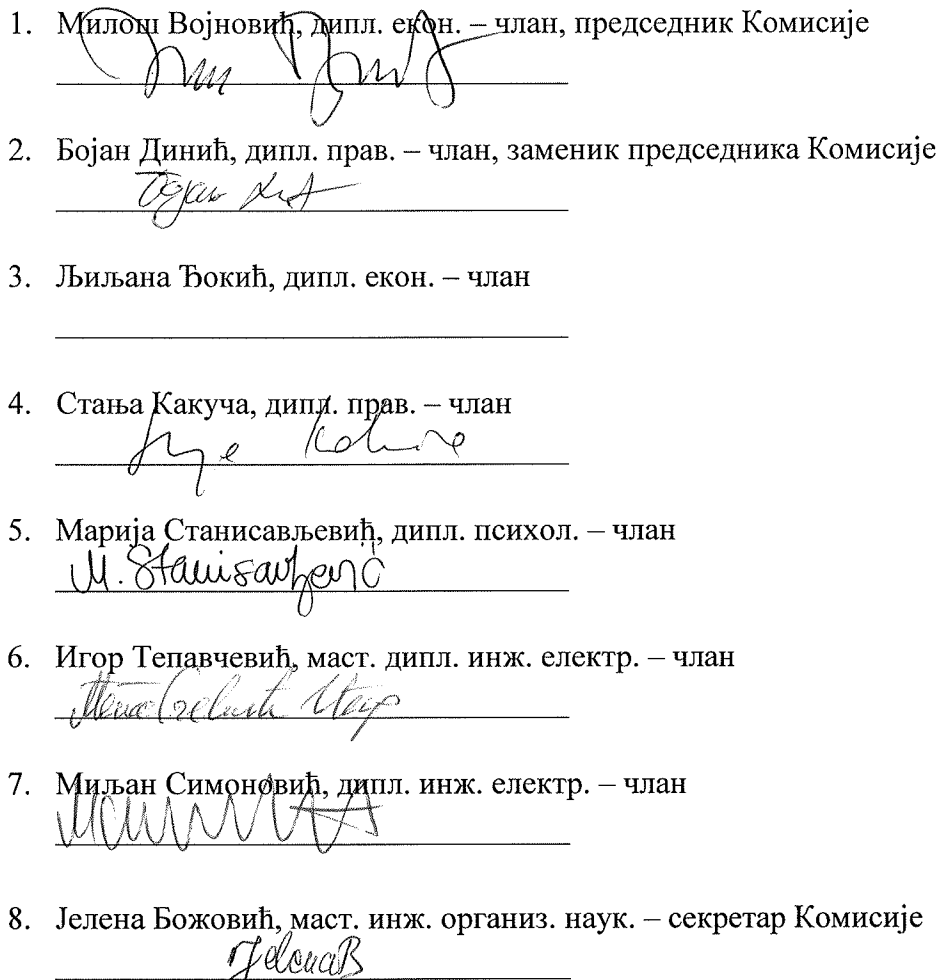 1. Милош Војновић, дипл. екон. – члан, председник Комисије
2. Бојан Динић, дипл. прав. – члан, заменик председника Комисије
3. Љиљана Ђокић, дипл. екон. – члан
4. Стања Какуча, дипл. прав. – члан
5. Марија Станисављевић, дипл. психол. – члан
M. Stanisavljević
6. Игор Тепавчевић, маст. дипл. инж. електр. – члан
7. Миљан Симоновић, дипл. инж. електр. – члан
8. Јелена Божовић, маст. инж. организ. наук. – секретар Комисије
JelenaB